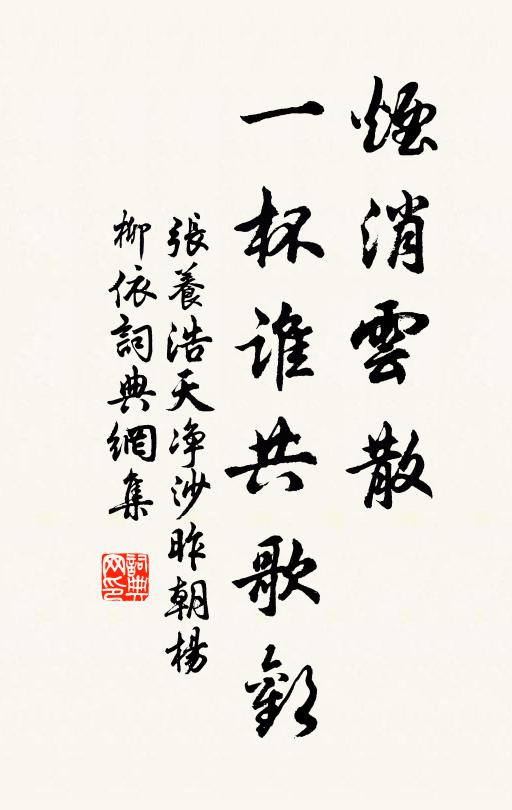 煙消雲散
一杯誰共歌歡
張養浩天净沙昨朝楊
柳依詞典網集
詞典网印